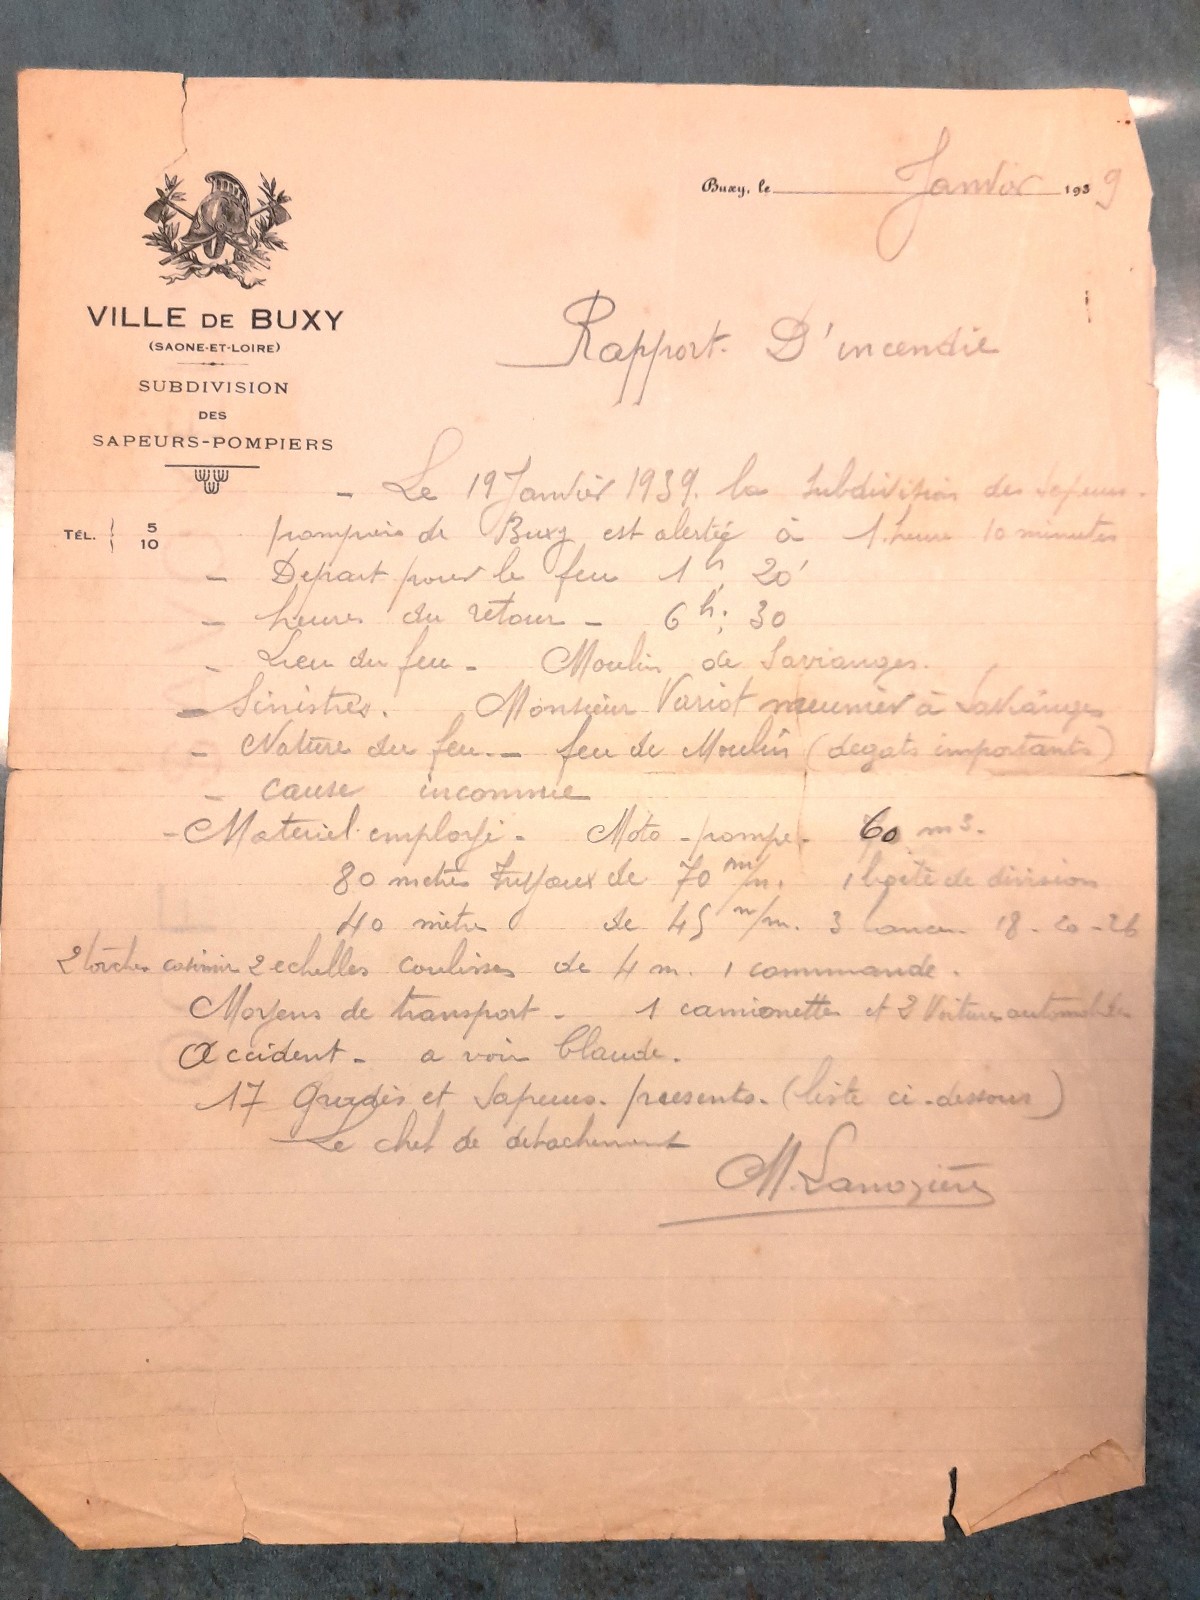 Buxy, le Janvier 1939
VILLE DE BUXY
(SAONE-ET-LOIRE)
SUBDIVISION
DES
SAPEURS-POMPIERS
TÉL. 5
10
Rapport D'incendie
- Le 19 Janvier 1939. la subdivision des sapeurs-
pompiers de Buxy est alertée à 1 heure 10 minutes
- Depart pour le feu 1h 20'
- heures du retour - 6h: 30
- Lieu du feu - Moulin de Savianges.
- Sinistrés. Monsieur Variot meunier à Savianges
- Nature du feu. - feu de Moulin (degats importants)
- cause inconnue
- Materiel employé - Moto-pompe - 60 m3.
80 metres tuyaux de 70 m/m. 1 boîte de division
40 mètre de 45 m/m. 3 lances 18 - 20 - 26
2 torches 2 echelles coulisses de 4 m. 1 commande.
Moyens de transport - 1 camionette et 2 Voitures automobiles
Accident - a voir Claude.
17 Gradés et Sapeurs. presents. (liste ci-dessous)
Le chef de detachement
M. Lanozière